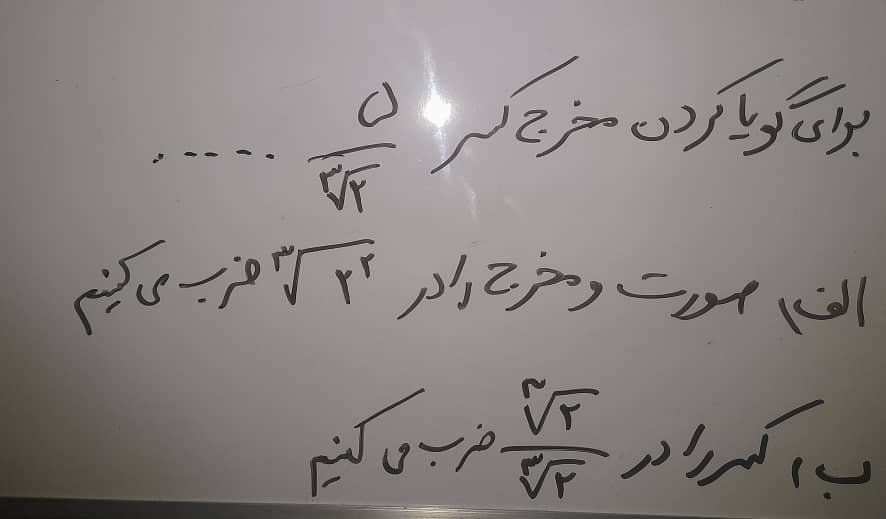 برای گویا کردن مخرج کسر ۵/∛۲ .....
الف) صورت و مخرج را در ∛۲^۲ ضرب می کنیم
ب) کسر را در ∛۲/∛۲ ضرب می کنیم